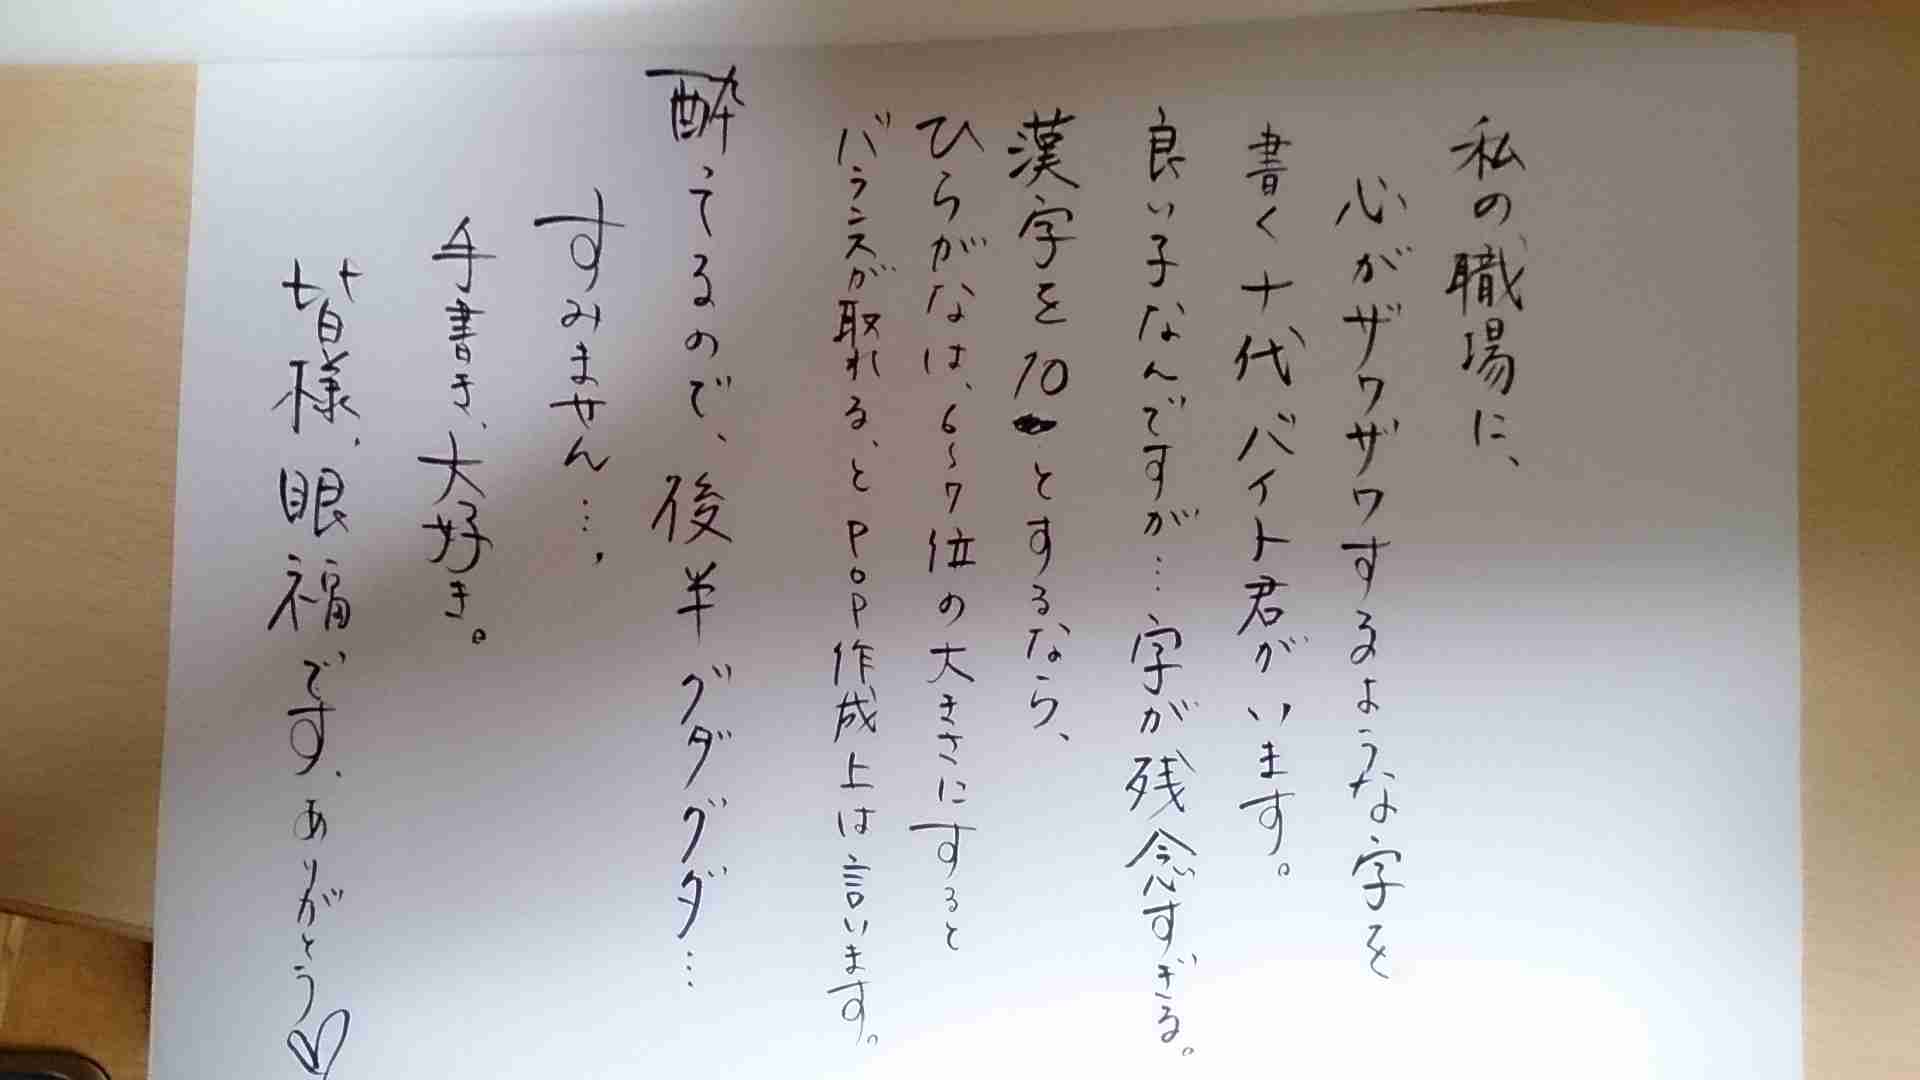 私の職場に、
心がザワザワするような字を
書く十代バイト君がいます。
良い子なんですが…字が残念すぎる。
漢字を10とするなら、
ひらがなは、6〜7位の大きさにすると
バランスが取れる、とPOP作成上は言います。
酔ってるので、後半グダグダ…
すみません…、
手書き、大好き。
皆様、眼福です、ありがとう♡